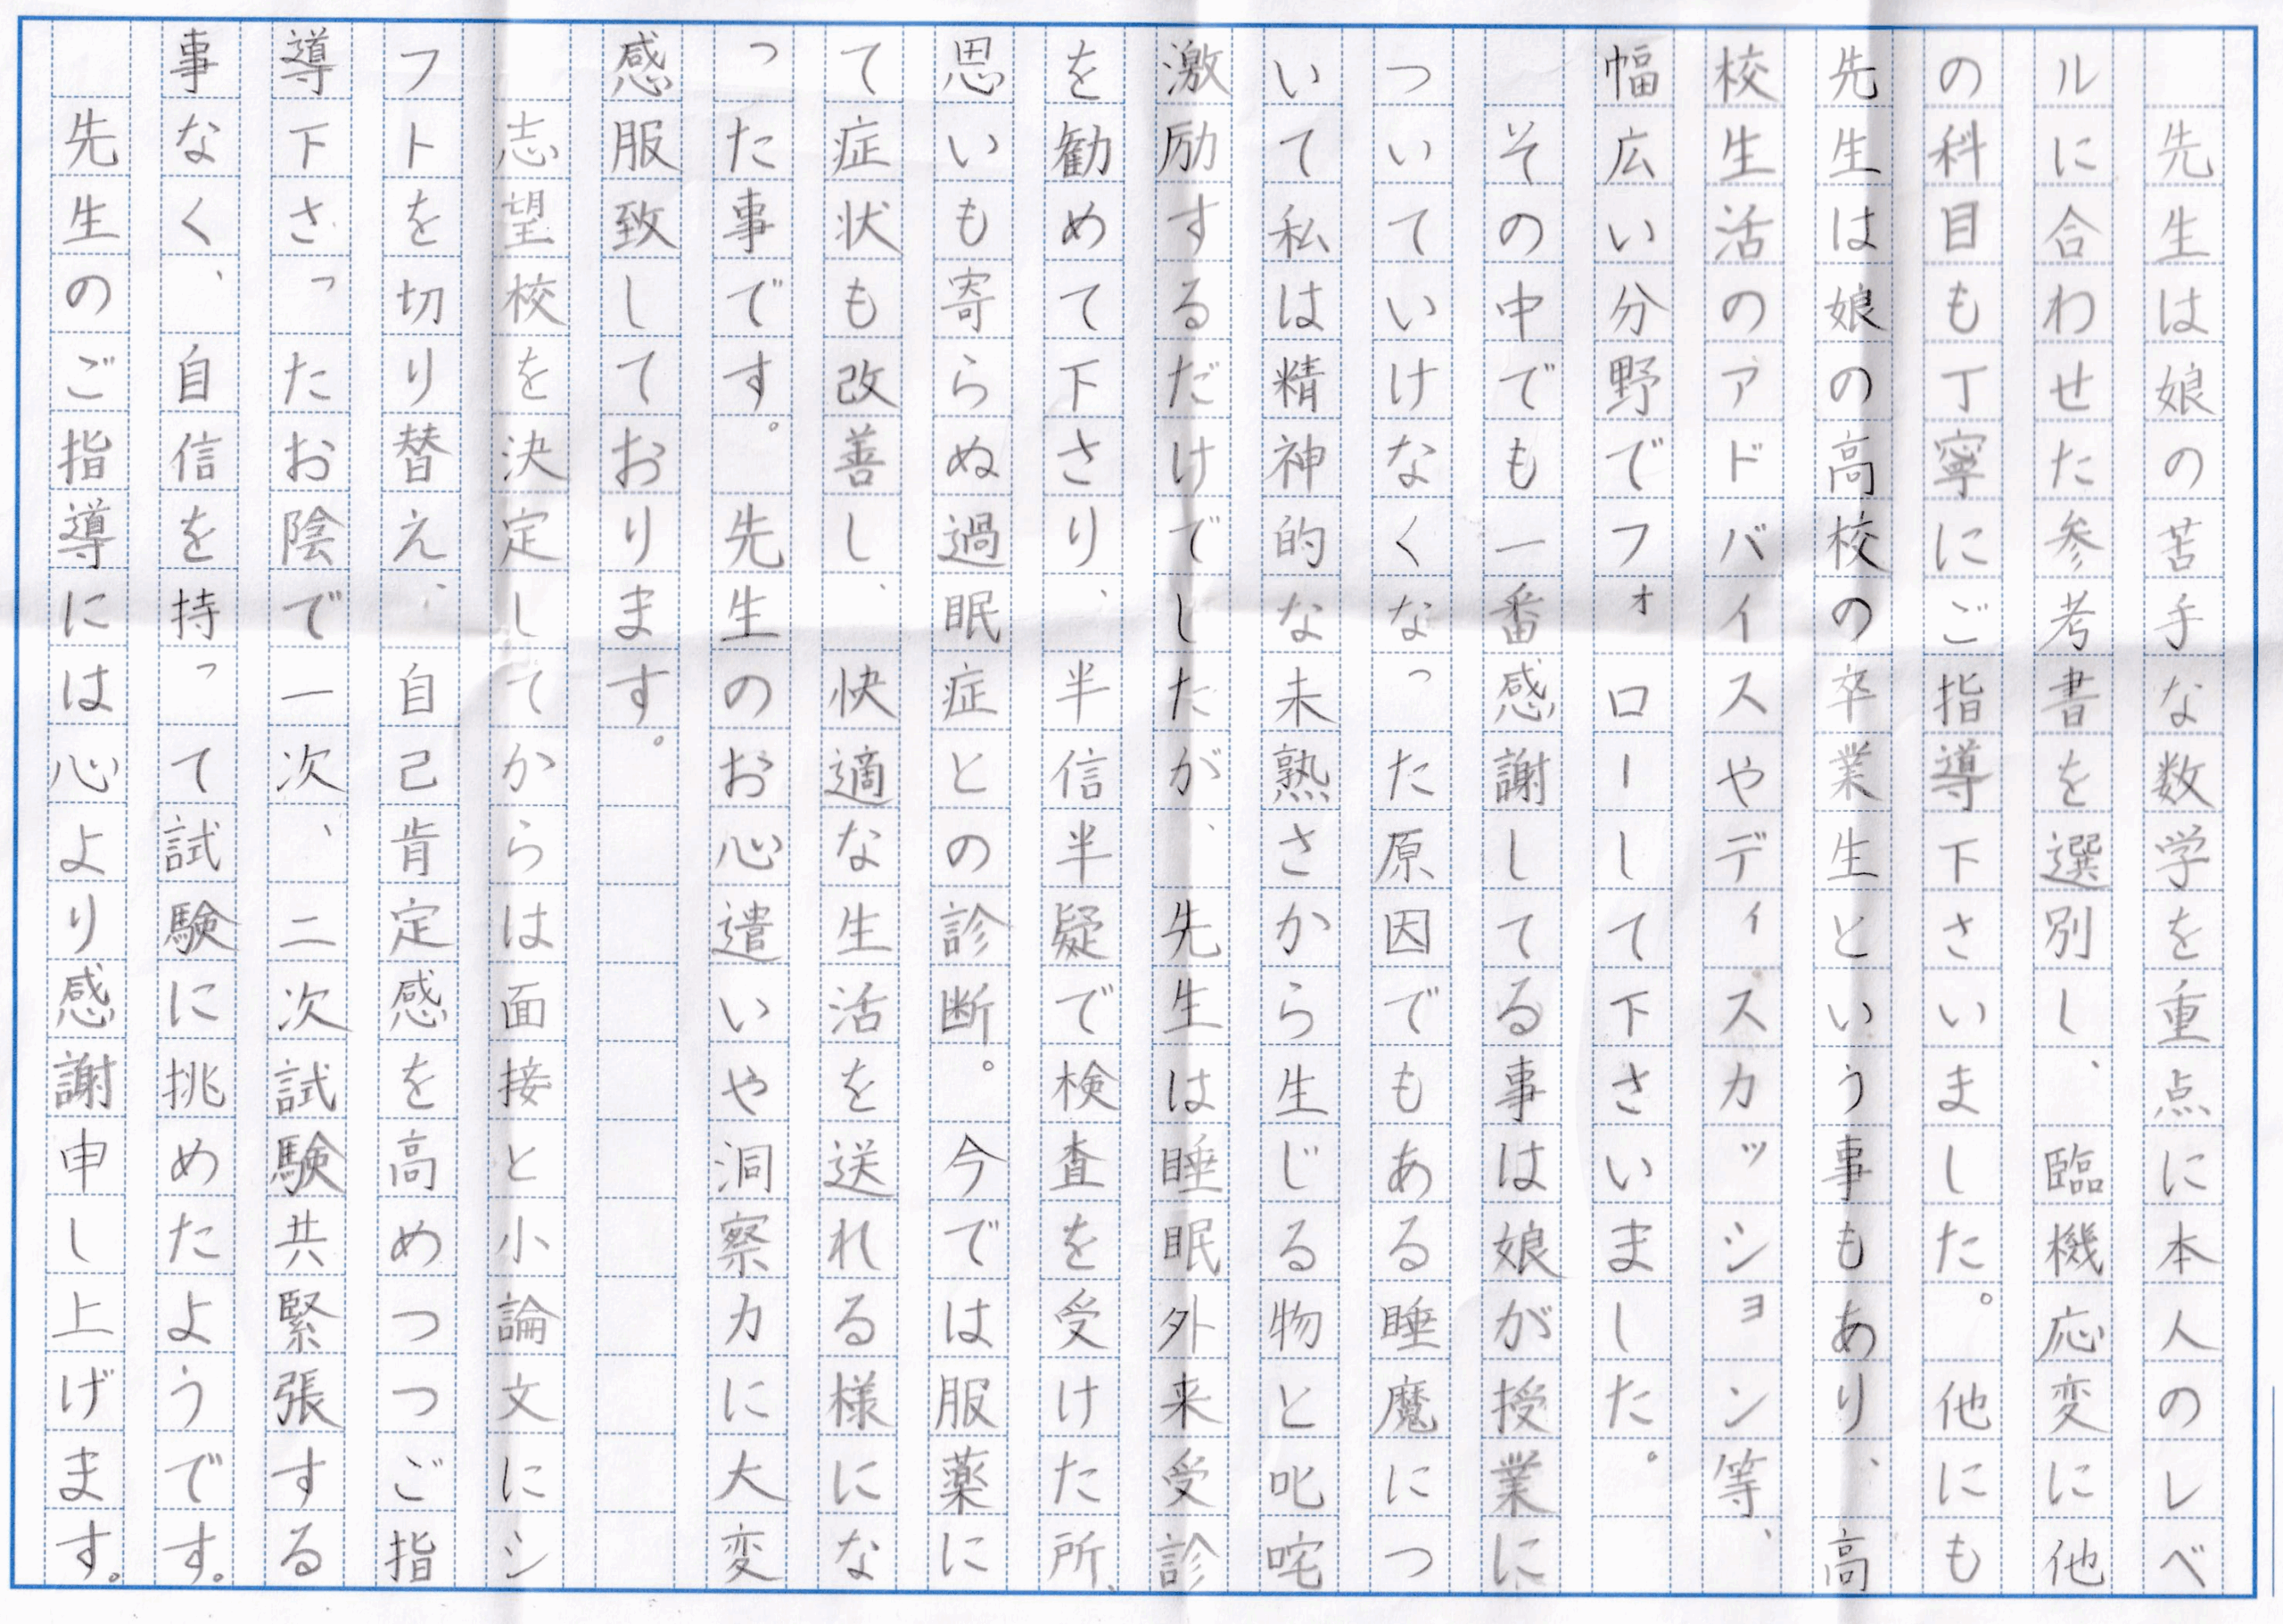 先生は娘の苦手な数学を重点に本人のレベ
ルに合わせた参考書を選別し、臨機応変に他
の科目も丁寧にご指導下さいました。他にも
先生は娘の高校の卒業生という事もあり、高
校生活のアドバイスやディスカッション等、
幅広い分野でフォローして下さいました。
　その中でも一番感謝してる事は娘が授業に
ついていけなくなった原因でもある睡魔につ
いて私は精神的な未熟さから生じる物と叱咤
激励するだけでしたが、先生は睡眠外来受診
を勧めて下さり、半信半疑で検査を受けた所、
思いも寄らぬ過眠症との診断。今では服薬に
て症状も改善し、快適な生活を送れる様にな
った事です。先生のお心遣いや洞察力に大変
感服致しております。
　志望校を決定してからは面接と小論文にシ
フトを切り替え、自己肯定感を高めつつご指
導下さったお陰で一次、二次試験共緊張する
事なく、自信を持って試験に挑めたようです。
　先生のご指導には心より感謝申し上げます。